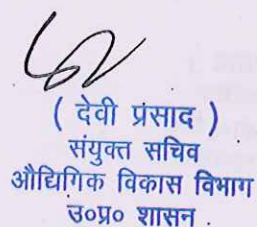 ( देवी प्रसाद )
संयुक्त सचिव
औद्यिगिक विकास विभाग
उ०प्र० शासन .